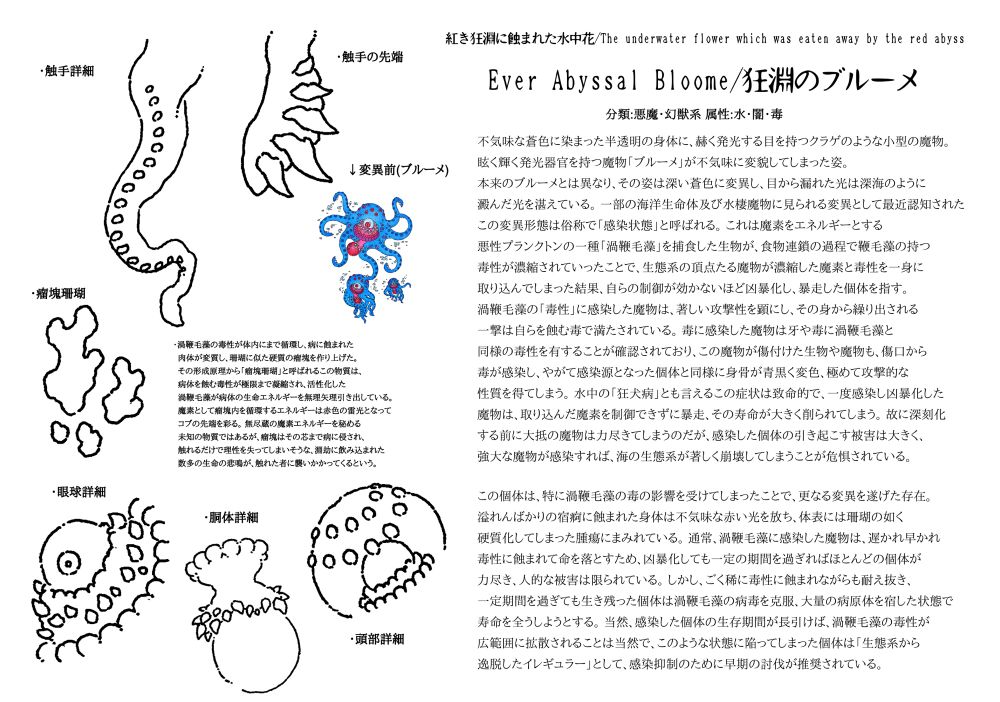 紅き狂淵に蝕まれた水中花/The underwater flower which was eaten away by the red abyss
Ever Abyssal Bloome/狂淵のブルーメ
分類:悪魔・幻獣系 属性:水・闇・毒
不気味な蒼色に染まった半透明の身体に、赫く発光する目を持つクラゲのような小型の魔物。
眩く輝く発光器官を持つ魔物「ブルーメ」が不気味に変貌してしまった姿。
本来のブルーメとは異なり、その姿は深い蒼色に変異し、目から漏れた光は深海のように
澱んだ光を湛えている。 一部の海洋生命体及び水棲魔物に見られる変異として最近認知された
この変異形態は俗称で「感染状態」と呼ばれる。 これは魔素をエネルギーとする
悪性プランクトンの一種「渦鞭毛藻」を捕食した生物が、食物連鎖の過程で鞭毛藻の持つ
毒性が濃縮されていったことで、生態系の頂点たる魔物が濃縮した魔素と毒性を一身に
取り込んでしまった結果、自らの制御が効かないほど凶暴化し、暴走した個体を指す。
渦鞭毛藻の「毒性」に感染した魔物は、著しい攻撃性を顕にし、その身から繰り出される
一撃は自らを蝕む毒で満たされている。 毒に感染した魔物は牙や毒に渦鞭毛藻と
同様の毒性を有することが確認されており、この魔物が傷付けた生物や魔物も、傷口から
毒が感染し、やがて感染源となった個体と同様に身骨が青黒く変色、極めて攻撃的な
性質を得てしまう。 水中の「狂犬病」とも言えるこの症状は致命的で、一度感染し凶暴化した
魔物は、取り込んだ魔素を制御できずに暴走、その寿命が大きく削られてしまう。 故に深刻化
する前に大抵の魔物は力尽きてしまうのだが、感染した個体の引き起こす被害は大きく、
強大な魔物が感染すれば、海の生態系が著しく崩壊してしまうことが危惧されている。
この個体は、特に渦鞭毛藻の毒の影響を受けてしまったことで、更なる変異を遂げた存在。
溢れんばかりの宿痾に蝕まれた身体は不気味な赤い光を放ち、体表には珊瑚の如く
硬質化してしまった腫瘍にまみれている。 通常、渦鞭毛藻に感染した魔物は、遅かれ早かれ
毒性に蝕まれて命を落とすため、凶暴化しても一定の期間を過ぎればほとんどの個体が
力尽き、人的な被害は限られている。 しかし、ごく稀に毒性に蝕まれながらも耐え抜き、
一定期間を過ぎても生き残った個体は渦鞭毛藻の病毒を克服、大量の病原体を宿した状態で
寿命を全うしようとする。 当然、感染した個体の生存期間が長引けば、渦鞭毛藻の毒性が
広範囲に拡散されることは当然で、このような状態に陥ってしまった個体は「生態系から
逸脱したイレギュラー」として、感染抑制のために早期の討伐が推奨されている。
・触手詳細
・触手の先端
↓変異前(ブルーメ)
・瘤塊珊瑚
・渦鞭毛藻の毒性が体内にまで循環し、病に蝕まれた
肉体が変質し、珊瑚に似た硬質の瘤塊を作り上げた。
その形成原理から「瘤塊珊瑚」と呼ばれるこの物質は、
病体を蝕む毒性が極限まで凝縮され、活性化した
渦鞭毛藻が病体の生命エネルギーを無理矢理引き出している。
魔素として瘤塊内を循環するエネルギーは赤色の雷光となって
コブの先端を彩る。 無尽蔵の魔素エネルギーを秘める
未知の物質ではあるが、瘤塊はその芯まで病に侵され、
触れるだけで理性を失ってしまいそうな、淵劫に飲み込まれた
数多の生命の悲鳴が、触れた者に襲いかかってくるという。
・眼球詳細
・胴体詳細
・頭部詳細